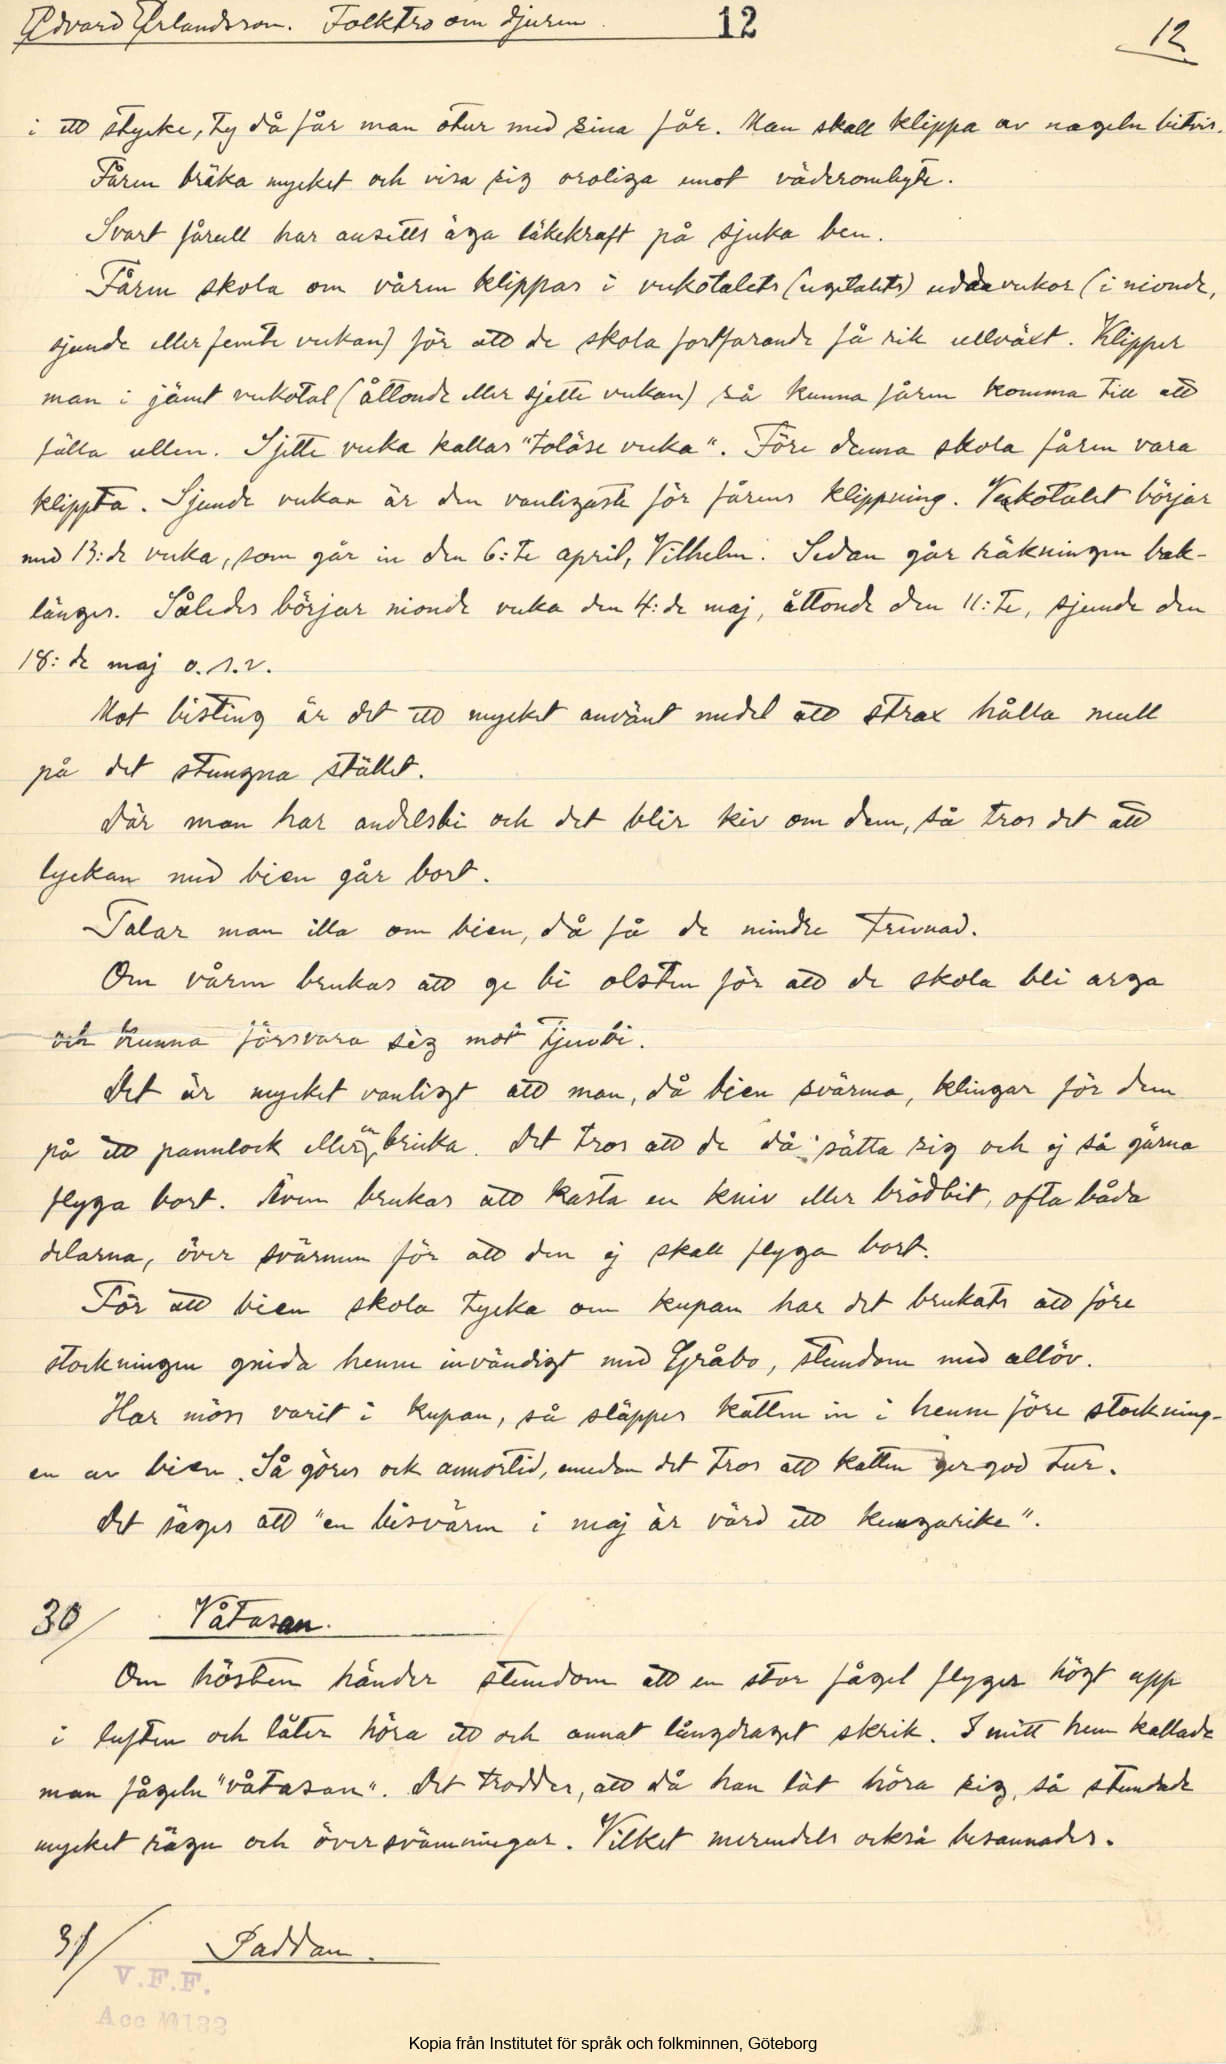 Edvard Erlandsson. Folktro om djuren. 12 12.
i ett stycke, ty då får man otur med sina får. Man skall klippa av nageln bitvis.
Fåren bräka mycket och visa sig oroliga emot väderombyte.
Svart fårull har ansetts äga läkekraft på sjuka ben.
Fåren skola om våren klippas i vukotalets (ugetalets) udda vukor (i nionde,
sjunde eller femte vukan) för att de skola fortfarande få rik ullväxt. Klipper
man i jämt vukotal (åttonde eller sjette vukan) så kunna fåren komma till att
fälla ullen. Sjette vuka kallas "tolöse vuka". Före denna skola fåren vara
klippta. Sjunde vukan är den vanligaste för fårens klippning. Vukotalet börjar
med 13:de vuka, som går in den 6:te april, Vilhelm. Sedan går räkningen bak-
länges. Således börjar nionde vuka den 4:de maj, åttonde den 11:te, sjunde den
18:de maj o.s.v.
Mot bisting är det ett mycket använt medel att strax hålla mull
på det stungna stället.
Där man har andelsbi och det blir kiv om dem, så tros det att
lyckan med bien går bort.
Talar man illa om bien, då få de mindre trevnad.
Om våren brukas att ge bi olsten för att de skola bli arga
och kunna försvara sig mot tjuvbi.
Det är mycket vanligt att man, då bien svärma, klingar för dem
på ett pannlock eller en bricka. Det tros att de då sätta sig och ej så gärna
flyga bort. Även brukas att kasta en kniv eller brödbit, ofta båda
delarna, över svärmen för att den ej skall flyga bort.
För att bien skola tycka om kupan har det brukats att före
stockningen gnida henne invändigt med Gråbo, stundom med allöv.
Har möss varit i kupan, så släppes katten in i henne före stockning-
en av bien. Så göres ock annorstid, emedan det tros att katten ger god tur.
Det säges att "en bisvärm i maj är värd ett kungarike".
30/ Våtasan.
Om hösten händer stundom att en stor fågel flyger högt upp
i luften och låter höra ett och annat långdraget skrik. I mitt hem kallade
man fågeln "våtasan". Det troddes, att då han lät höra sig, så stundade
mycket rägn och översvämningar. Vilket merendels också besannades.
31/ Paddan.
V.F.F.
Kopia från Institutet för språk och folkminnen, Göteborg